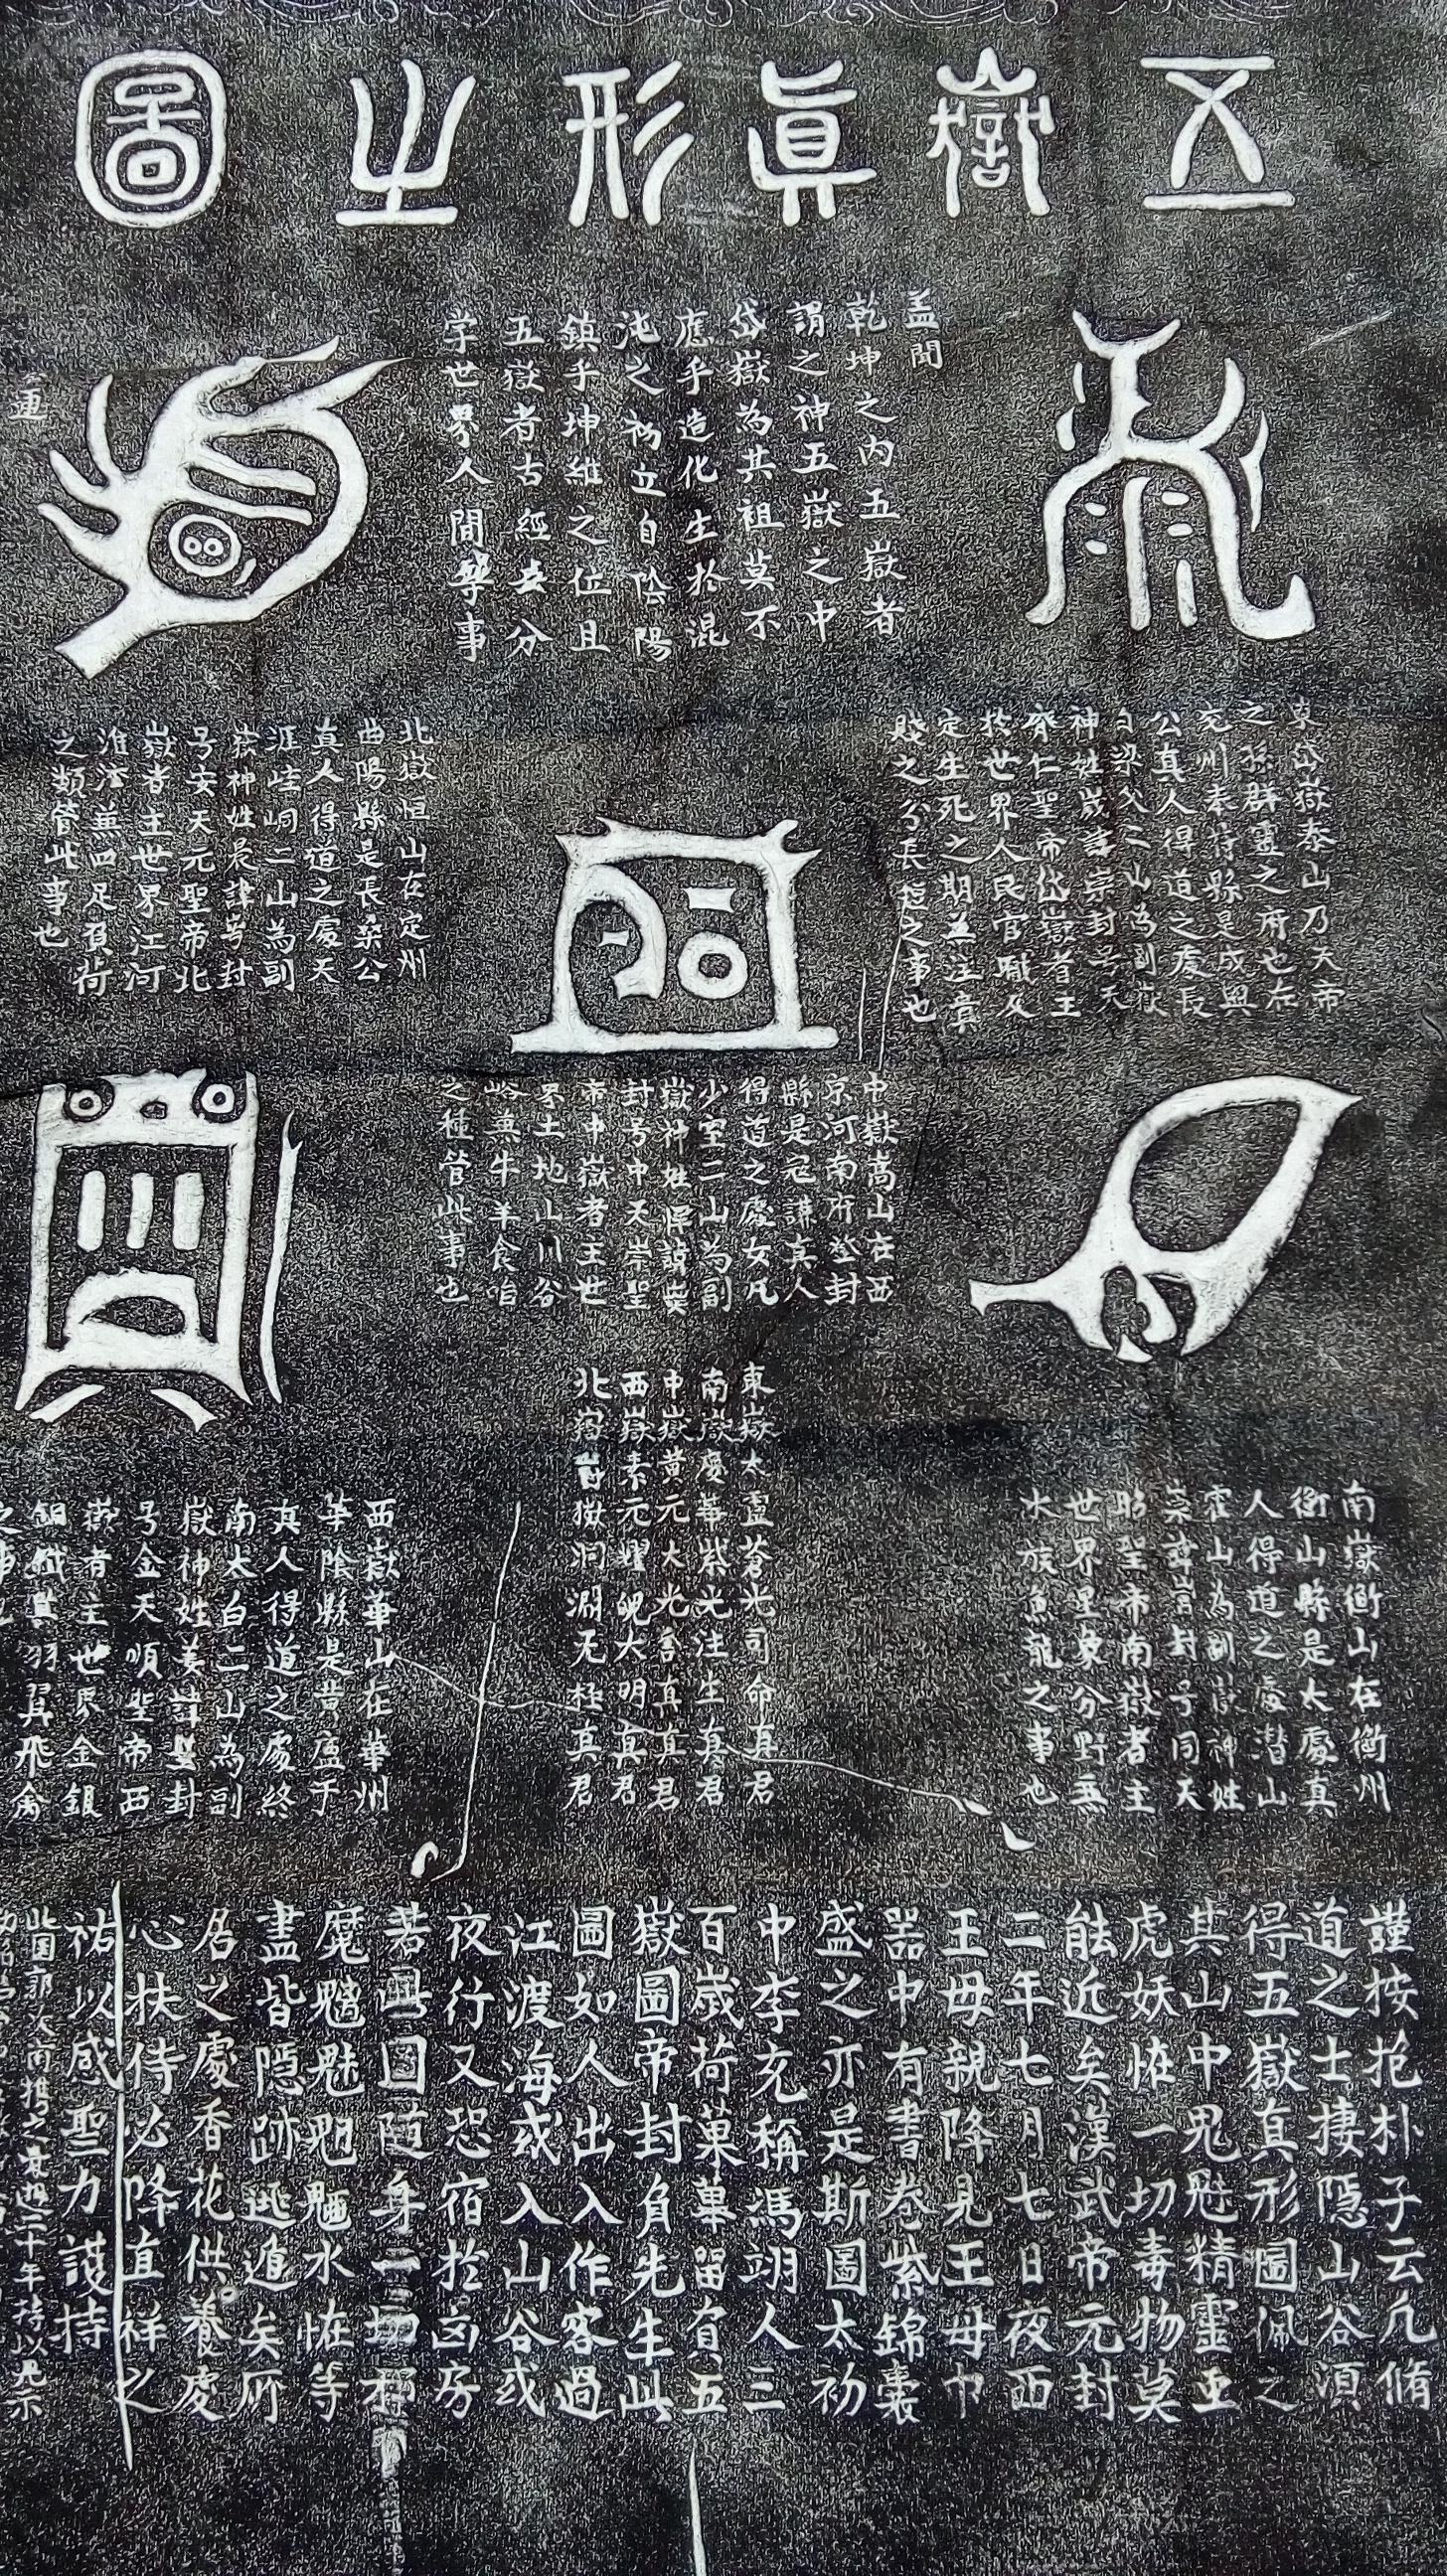 五嶽真形之圖
盖聞
乾坤之内五嶽者
謂之神五嶽之中
岱嶽為其祖莫不
應乎造化生於混
沌之初立自陰陽
鎮于坤維之位且
五嶽者古經云分
字世界人間等事
東岱嶽泰山乃天帝
之孫群靈之府也在
兖州奉符縣是成興
公真人得道之處長
白梁父二山為副嶽
神姓歲諱崇封号天
齊仁聖帝岱嶽者主
於世界人民官職及
定生死之期兼注貴
賤之分長短之事也
北嶽恒山在定州
曲陽縣是長桑公
真人得道之處天
涯崆峒二山為副
嶽神姓晨諱咢封
号安天元聖帝北
嶽者主世界江河
淮濟兼四足負荷
之類管此事也
中嶽嵩山在西
京河南府登封
縣是寇謙真人
得道之處女几
少室二山為副
嶽神姓惲諱
封号中天崇聖
帝中嶽者主世
界土地山川谷
峪兼牛羊食啗
之種管此事也
南嶽衡山在衡州
衡山縣是太處真
人得道之處潜山
霍山為副嶽神姓
崇諱 封号司天
昭聖帝南嶽者主
世界星象分野兼
水族魚龍之事也
東嶽太靈蒼光司命真君
南嶽慶華紫光注生真君
中嶽黃元大光含真真君
西嶽素元耀魄大明真君
北嶽 洞淵无極真君
西嶽華山在華州
華陰縣是昔盧手
真人得道之處終
南太白二山為副
嶽神姓姜諱 封
号金天順聖帝西
嶽者主世界金銀
銅鐵兼羽翼飛禽
之事也
謹按抱朴子云凡脩
道之士棲隱山谷須
得五嶽真形圖佩之
其山中鬼魅精靈虫
虎妖怪一切毒物莫
能近矣漢武帝元封
二年七月七日夜西
王母親降見王母巾
噐中有書卷紫錦囊
盛之亦是斯圖太初
中李充稱馮翊人三
百歲荷菓畱負五
嶽圖帝封負先生此
圖如人出入作客過
江渡海或入山谷或
夜行又恐宿於凶房
若 圖隨身一切
魔魑魅魍魎水怪等
盡皆隱跡逃遁矣所
居之處香花供養處
心扶侍必降直祥之
祐以感聖力護持